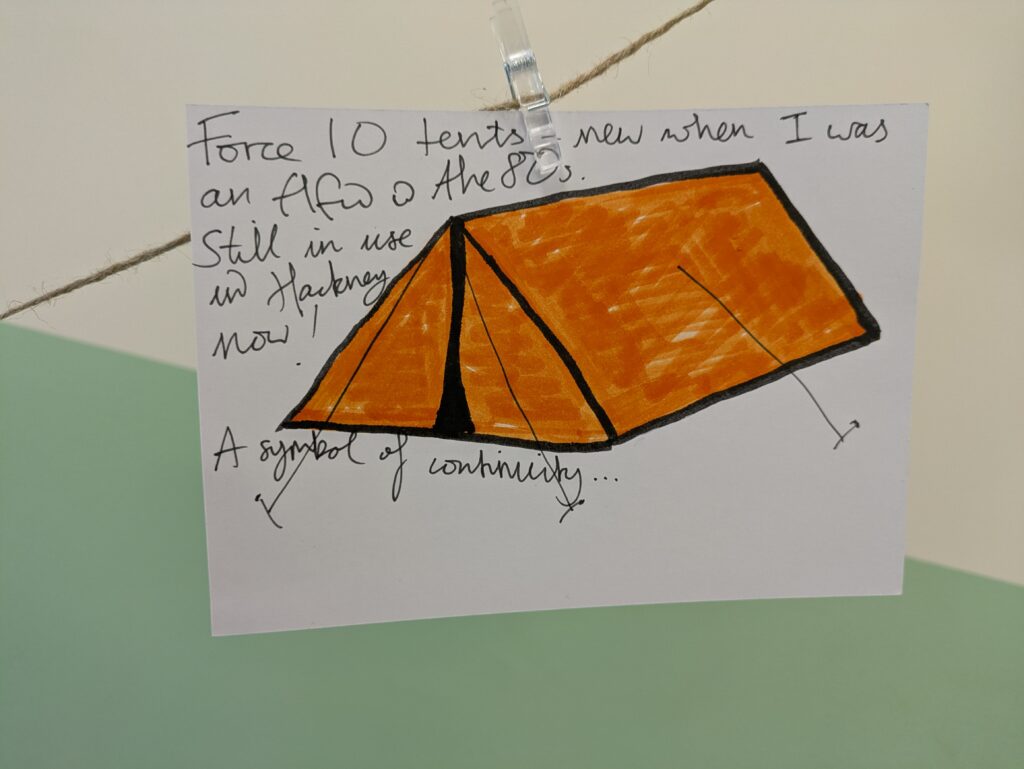 Force 10 tents - new when I was
an Elfin in the 80s.
Still in use
in Hackney
now!
A symbol of continuity...